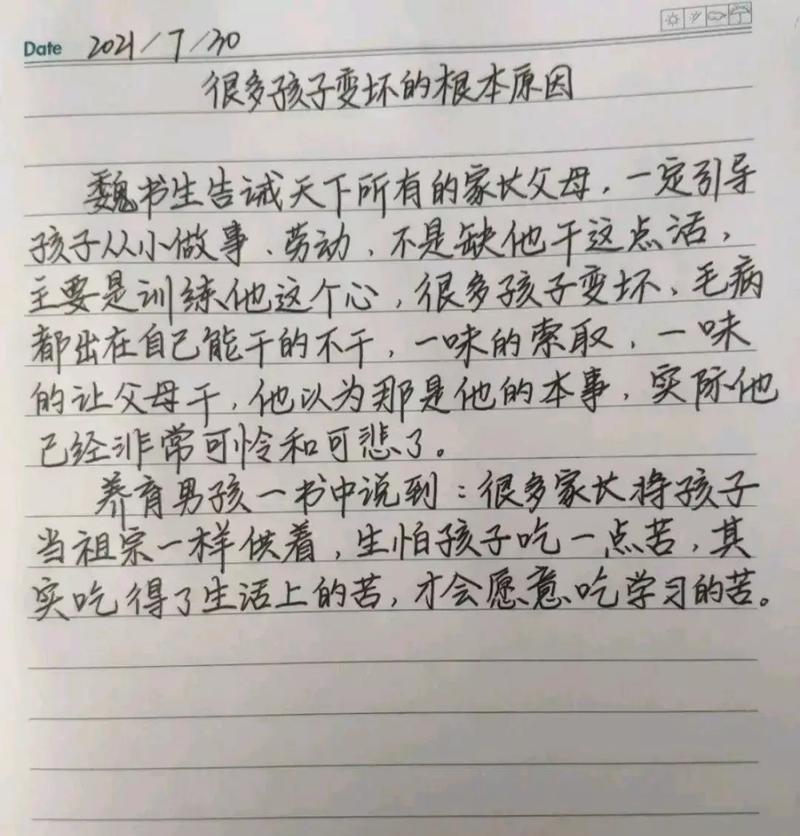 Date 2021/7/30
很多孩子变坏的根本原因
魏书生告诫天下所有的家长父母，一定引导
孩子从小做事、劳动，不是缺他干这点活，
主要是训练他这个心，很多孩子变坏、毛病
都出在自己能干的不干，一味的索取，一味
的让父母干，他以为那是他的本事，实际他
已经非常可怜和可悲了。
养育男孩一书中说到：很多家长将孩子
当祖宗一样供着，生怕孩子吃一点苦，其
实吃得了生活上的苦，才会愿意吃学习的苦。